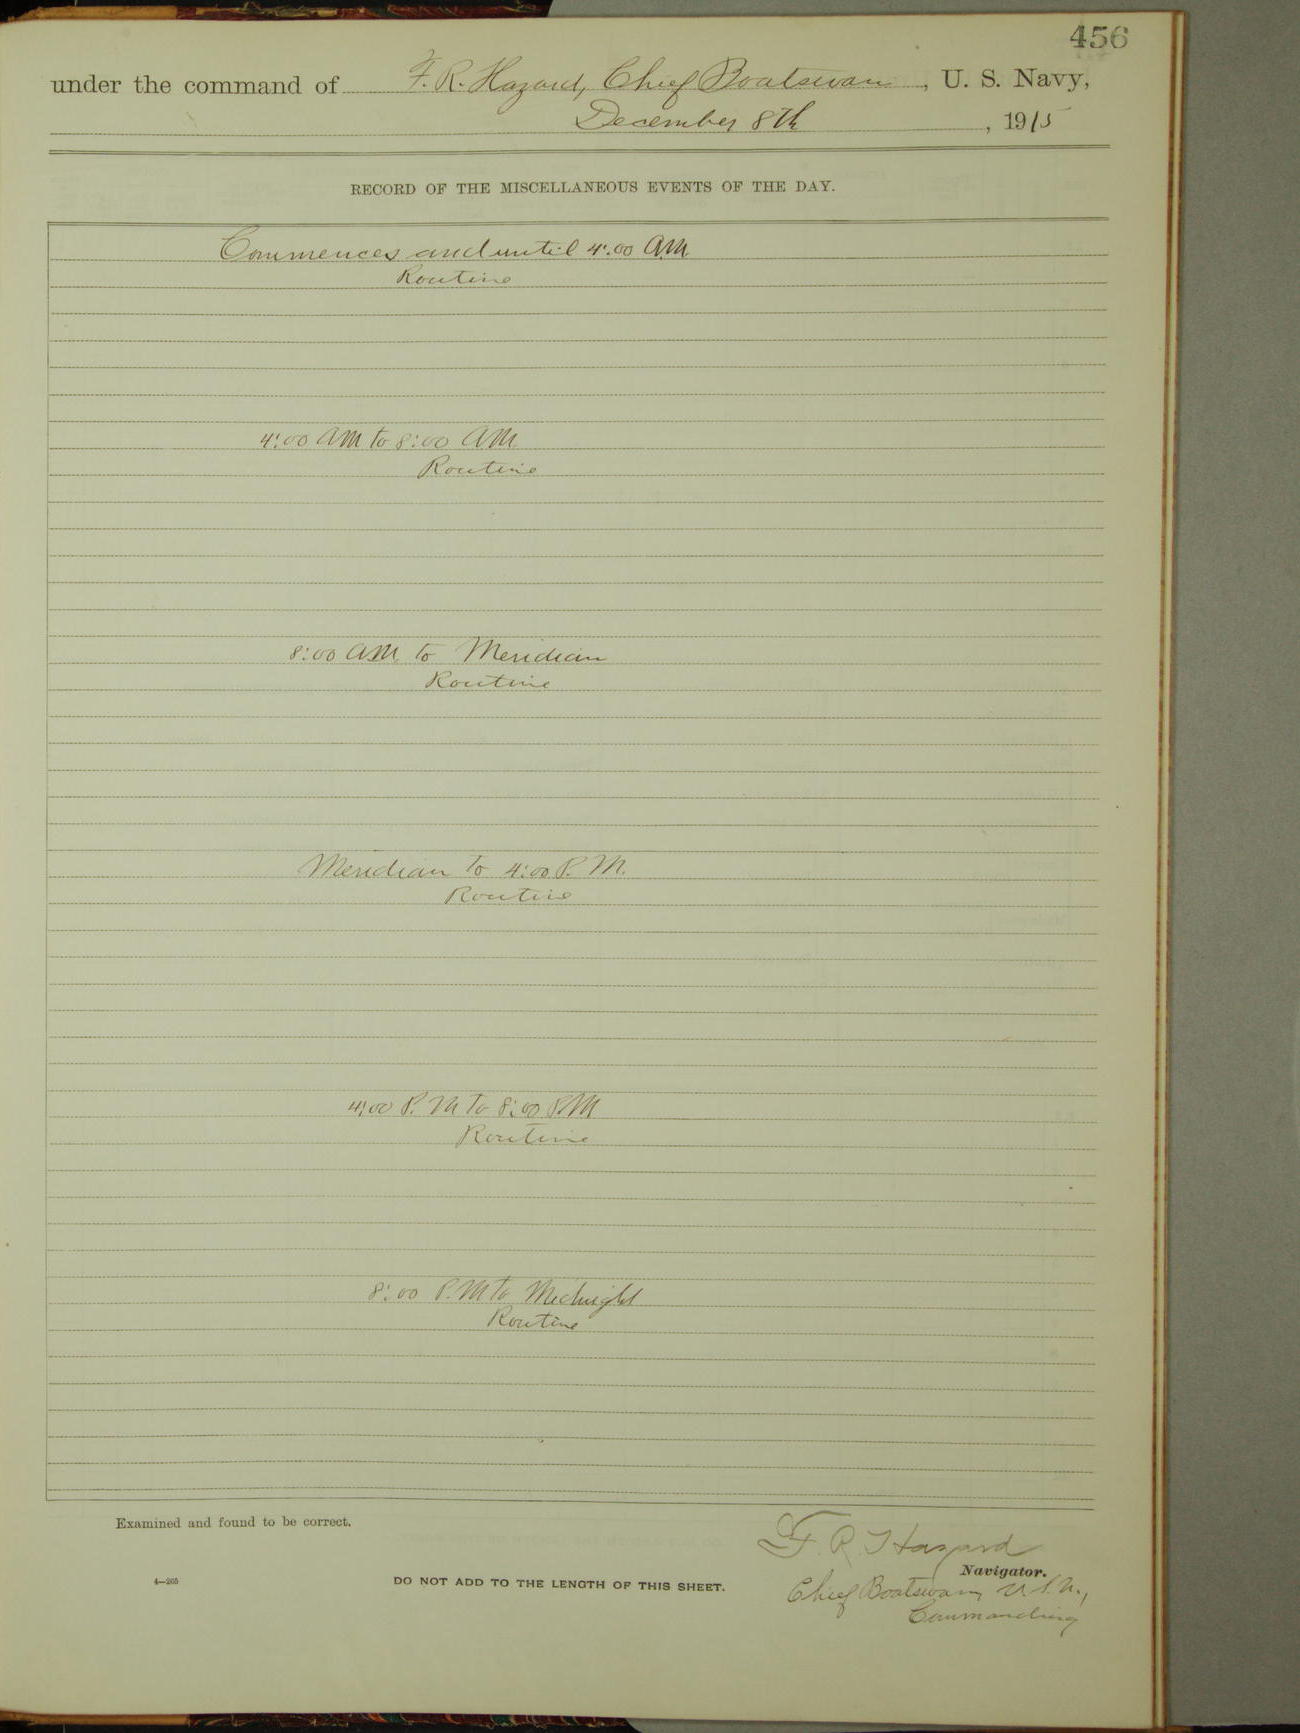 456
under the command of F. R. Hazard, Chief Boatswain, U. S. Navy,
December 8th, 1915
RECORD OF THE MISCELLANEOUS EVENTS OF THE DAY.
Commences and until 4:00 A.M.
Routine
4:00 AM to 8:00 AM
Routine
8:00 AM to Meridian
Routine
Meridian to 4:00 P.M.
Routine
4:00 P.M to 8:00 P.M
Routine
8:00 P.M to Midnight
Routine
Examined and found to be correct.
F. R. Hazard
Navigator.
4—265
DO NOT ADD TO THE LENGTH OF THIS SHEET.
Chief Boatswain, U.S.N.,
Commanding